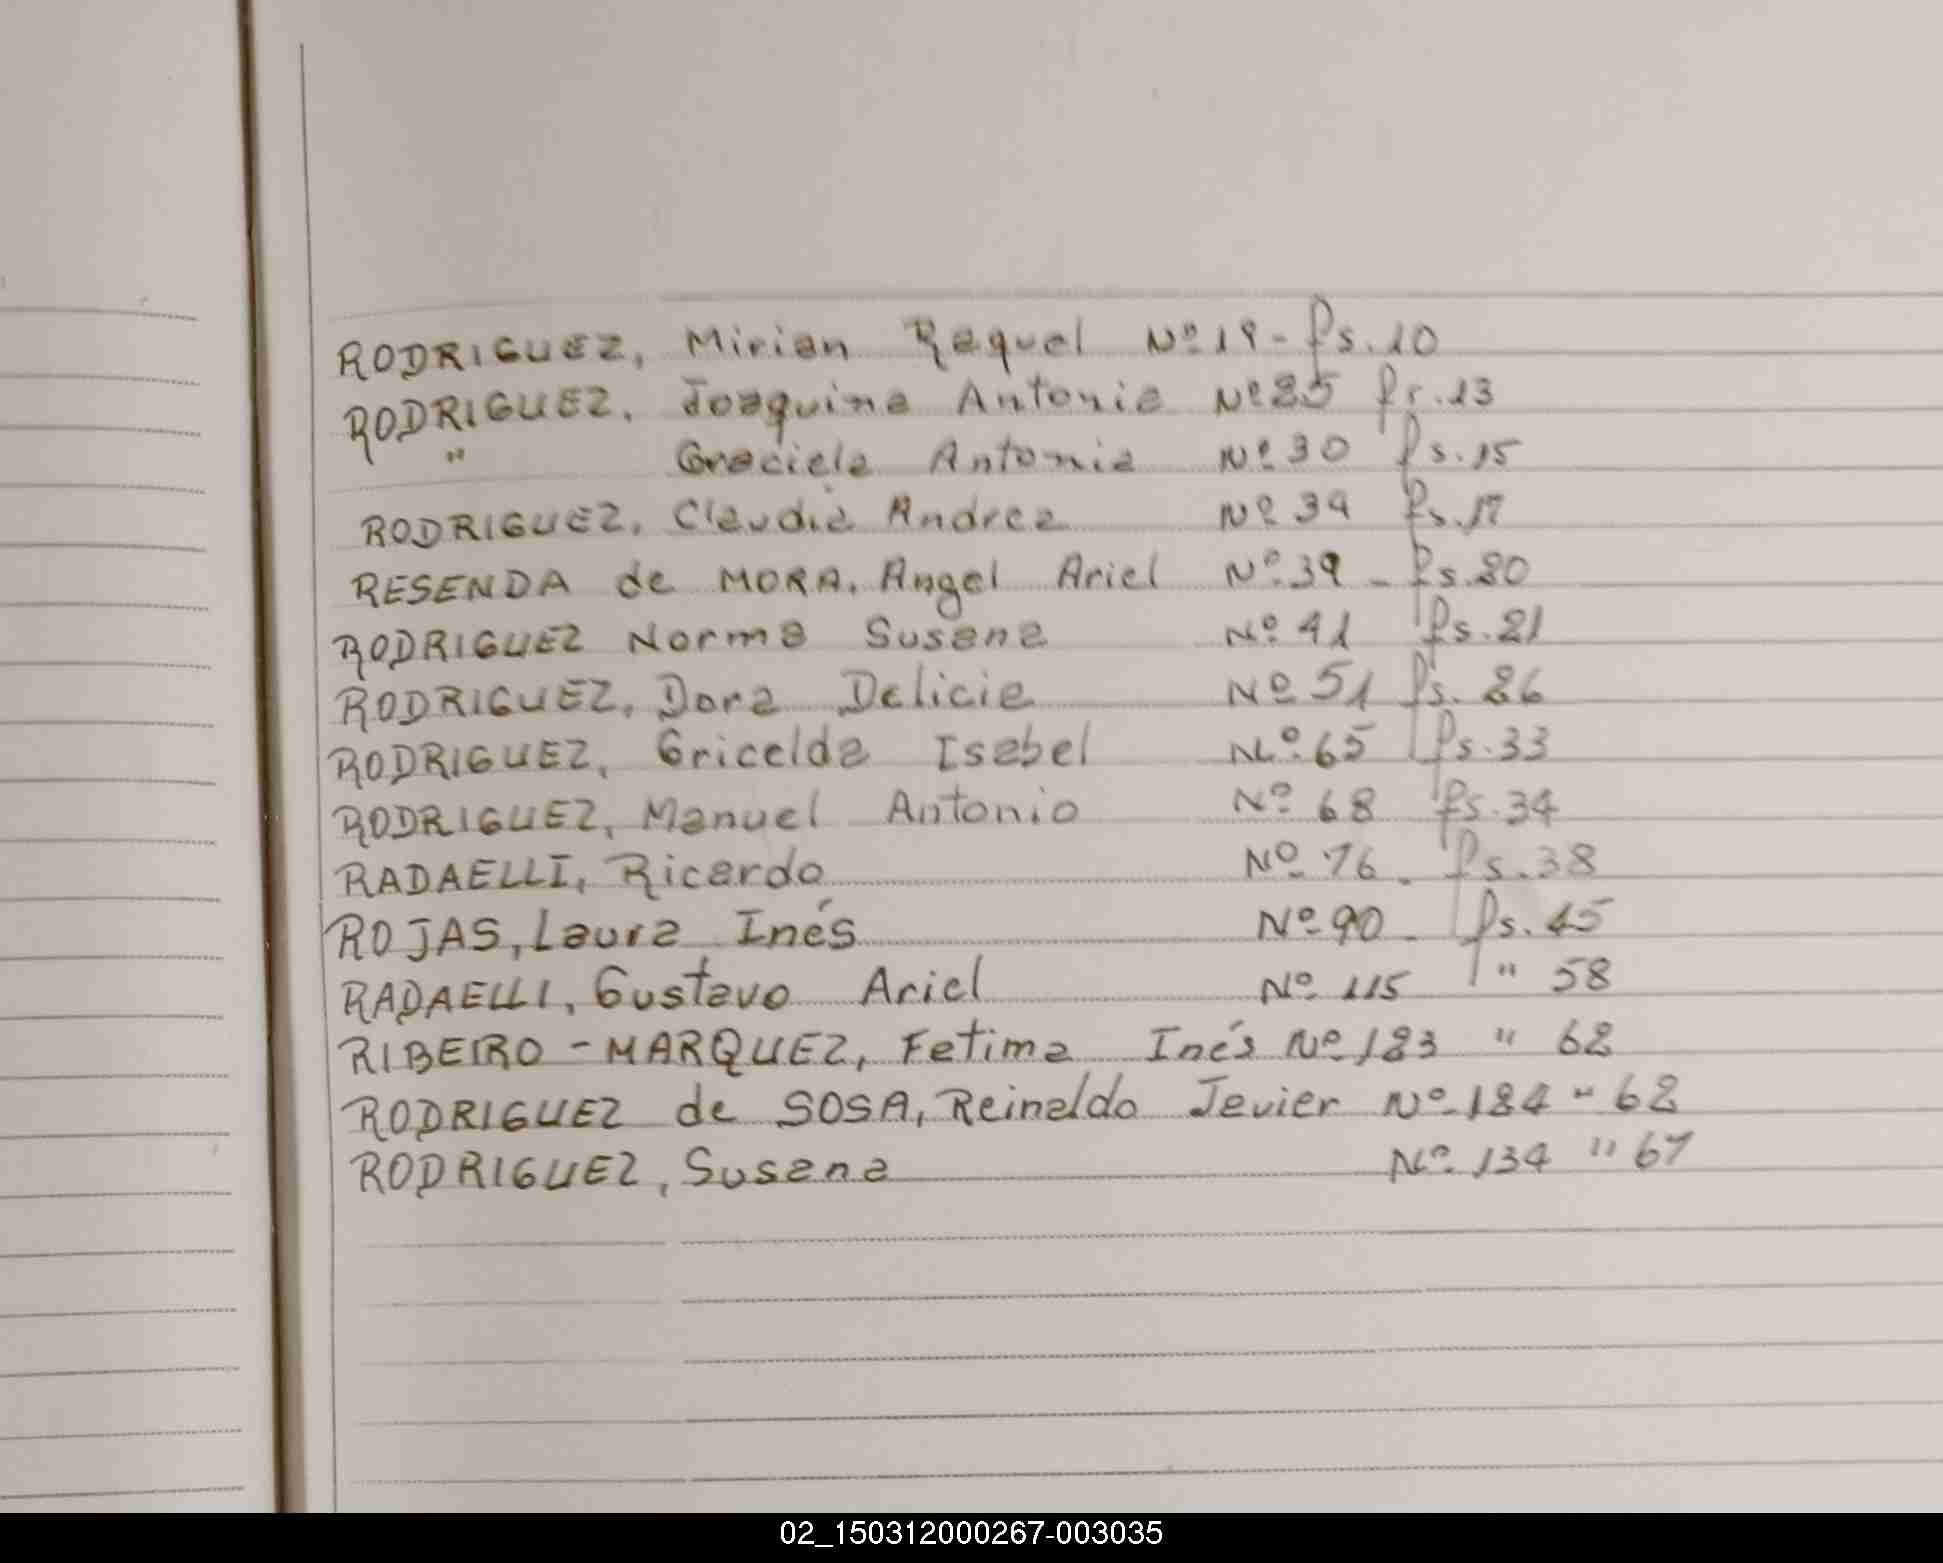 RODRIGUEZ, Mirian Raquel Nº 19 - fs. 10
RODRIGUEZ, Joaquina Antonia Nº 25 fs. 13
" Graciela Antonia Nº 30 fs. 15
RODRIGUEZ, Claudia Andrea Nº 34 fs. 17
RESENDA de MORA, Angel Ariel Nº 39 - fs. 20
RODRIGUEZ Norma Susana Nº 41 fs. 21
RODRIGUEZ, Dora Delicia Nº 51 fs. 26
RODRIGUEZ, Gricelda Isabel Nº 65 fs. 33
RODRIGUEZ, Manuel Antonio Nº 68 fs. 34
RADAELLI, Ricardo Nº 76 - fs. 38
ROJAS, Laura Inés Nº 90 - fs. 45
RADAELLI, Gustavo Ariel Nº 115 " 58
RIBEIRO - MARQUEZ, Fatima Inés Nº 123 " 62
RODRIGUEZ de SOSA, Reinaldo Javier Nº 124 " 62
RODRIGUEZ, Susana Nº 134 " 67
02_150312000267-003035